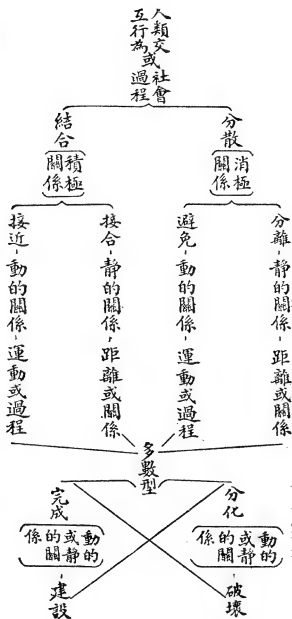 人類交互行為或社會過程
分散(消極關係)
結合(積極關係)
分離-靜的關係-距離或關係
避免-動的關係-運動或過程
接合-靜的關係-距離或關係
接近-動的關係-運動或過程
多數型
分化(動的或靜的關係)-破壞
完成(動的或靜的關係)-建設